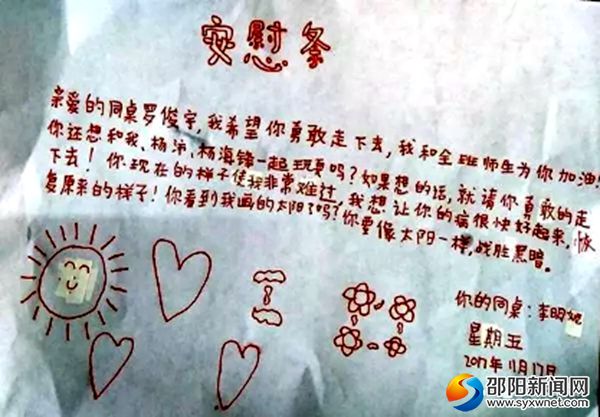 安慰条
亲爱的同桌罗俊宇,我希望你勇敢走下去,我和全班师生为你加油!
你还想和我、杨沛、杨海锋一起玩吗?如果想的话,就请你勇敢的走
下去!你现在的样子使我非常难过,我想让你的病很快好起来,恢
复原来的样子!你看到我画的太阳了吗?你要像太阳一样,战胜黑暗。
你的同桌:李明
星期五
2017年11月17日
邵阳新闻网
www.syxwnet.com